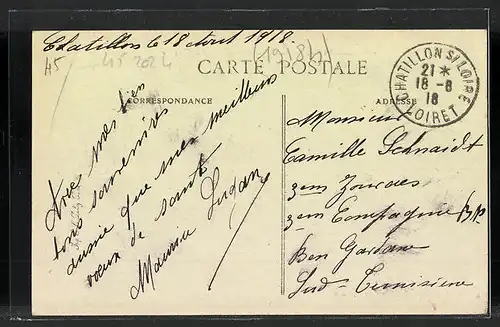 Chatillon le 18 Aout 1918.
(1918)
H5 45 2024
CARTE POSTALE
CORRESPONDANCE
ADRESSE
CHATILLON S/ LOIRE
21 *
18 - 8
18
LOIRET
Avec mes bien
bons souvenirs
ainsi que mes meilleurs
vœux de santé
Maurice
Monsieur
Camille Schnaidt
3em Zouaves
3em Compagnie
Ben Gardane
Sud Tunisien